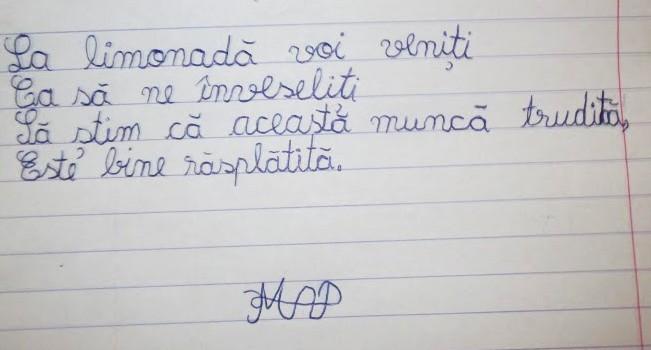 La limonadă voi veniți
Ca să ne înveseliti
Să stim că această muncă trudită,
Este bine răsplătită.
MAP